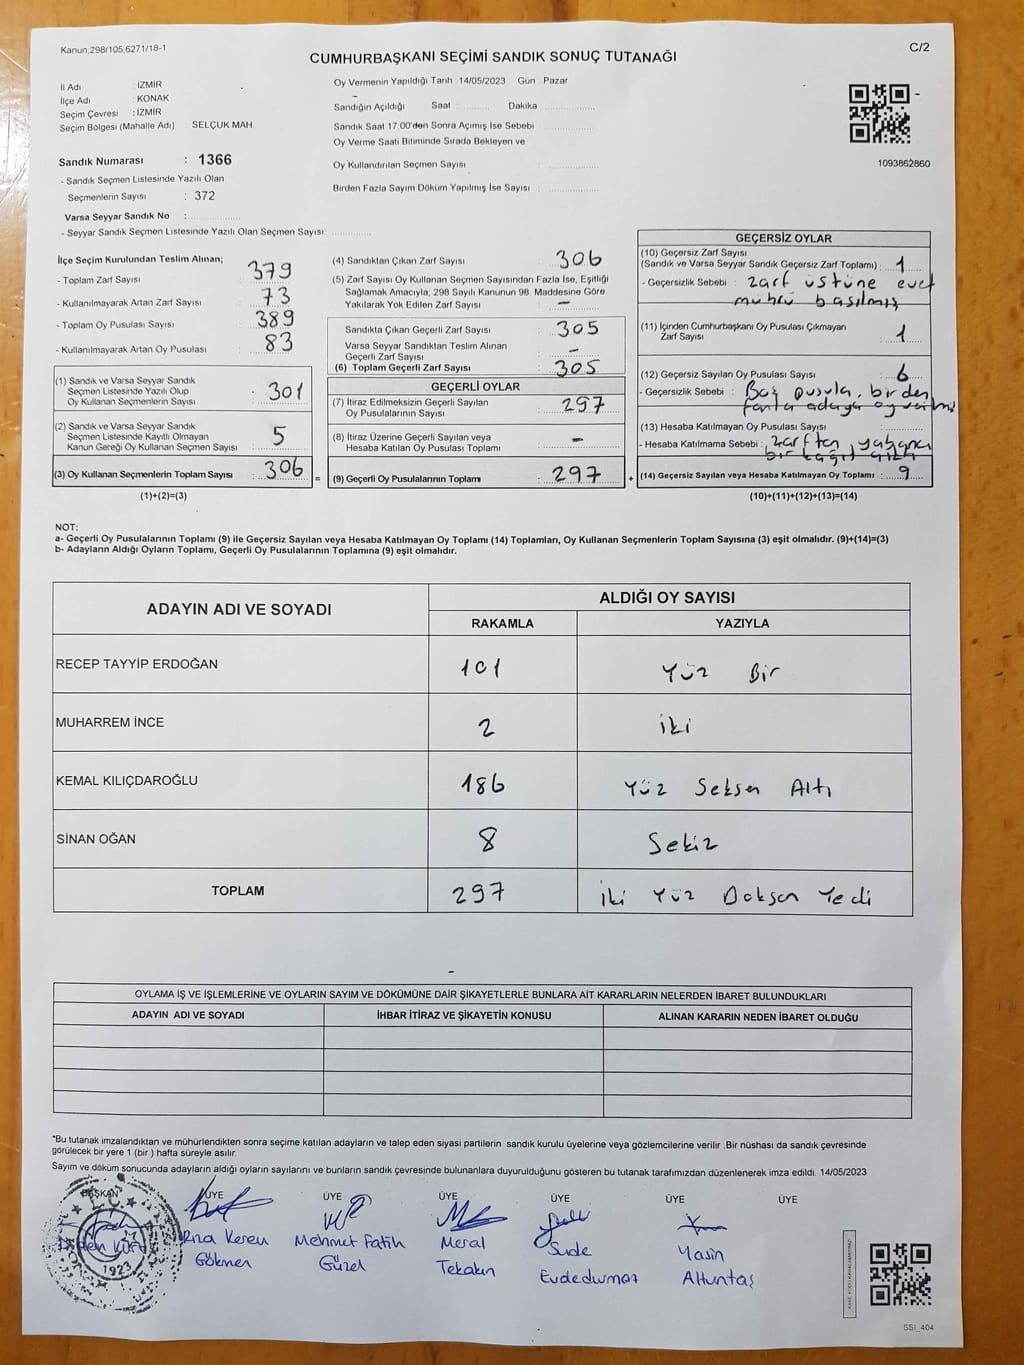 Kanun;298/105;6271/18-1
C/2
CUMHURBAŞKANI SEÇİMİ SANDIK SONUÇ TUTANAĞI
İl Adı : İZMİR
İlçe Adı : KONAK
Seçim Çevresi : İZMİR
Seçim Bölgesi (Mahalle Adı) : SELÇUK MAH.
Sandık Numarası : 1366
- Sandık Seçmen Listesinde Yazılı Olan
Seçmenlerin Sayısı : 372
Varsa Seyyar Sandık No :
- Seyyar Sandık Seçmen Listesinde Yazılı Olan Seçmen Sayısı:
Oy Vermenin Yapıldığı Tarih 14/05/2023 Gün Pazar
Sandığın Açıldığı Saat : Dakika :
Sandık Saat 17:00'den Sonra Açımış İse Sebebi :
Oy Verme Saati Bitiminde Sırada Bekleyen ve
Oy Kullandırılan Seçmen Sayısı :
Birden Fazla Sayım Döküm Yapılmış İse Sayısı :
1093862860
İlçe Seçim Kurulundan Teslim Alınan;
- Toplam Zarf Sayısı : 379
- Kullanılmayarak Artan Zarf Sayısı : 73
- Toplam Oy Pusulası Sayısı : 389
- Kullanılmayarak Artan Oy Pusulası : 83
(1) Sandık ve Varsa Seyyar Sandık
Seçmen Listesinde Yazılı Olup
Oy Kullanan Seçmenlerin Sayısı : 301
(2) Sandık ve Varsa Seyyar Sandık
Seçmen Listesinde Kayıtlı Olmayan
Kanun Gereği Oy Kullanan Seçmen Sayısı : 5
(3) Oy Kullanan Seçmenlerin Toplam Sayısı : 306 =
(1)+(2)=(3)
(4) Sandıktan Çıkan Zarf Sayısı : 306
(5) Zarf Sayısı Oy Kullanan Seçmen Sayısından Fazla İse, Eşitliği
Sağlamak Amacıyla; 298 Sayılı Kanunun 98. Maddesine Göre
Yakılarak Yok Edilen Zarf Sayısı : –
Sandıkta Çıkan Geçerli Zarf Sayısı : 305
Varsa Seyyar Sandıktan Teslim Alınan
Geçerli Zarf Sayısı : –
(6) Toplam Geçerli Zarf Sayısı : 305
GEÇERLİ OYLAR
(7) İtiraz Edilmeksizin Geçerli Sayılan
Oy Pusulalarının Sayısı : 297
(8) İtiraz Üzerine Geçerli Sayılan veya
Hesaba Katılan Oy Pusulası Toplamı : –
(9) Geçerli Oy Pusulalarının Toplamı : 297 +
GEÇERSİZ OYLAR
(10) Geçersiz Zarf Sayısı
(Sandık ve Varsa Seyyar Sandık Geçersiz Zarf Toplamı) : 1
- Geçersizlik Sebebi : zarf üstüne evet
mührü basılmış
(11) İçinden Cumhurbaşkanı Oy Pusulası Çıkmayan
Zarf Sayısı : 1
(12) Geçersiz Sayılan Oy Pusulası Sayısı : 6
- Geçersizlik Sebebi : Boş pusula, birden
fazla adaya oy
(13) Hesaba Katılmayan Oy Pusulası Sayısı :
- Hesaba Katılmama Sebebi : zarftan yabancı
bir kağıt
(14) Geçersiz Sayılan veya Hesaba Katılmayan Oy Toplamı : 9
(10)+(11)+(12)+(13)=(14)
NOT:
a- Geçerli Oy Pusulalarının Toplamı (9) ile Geçersiz Sayılan veya Hesaba Katılmayan Oy Toplamı (14) Toplamları, Oy Kullanan Seçmenlerin Toplam Sayısına (3) eşit olmalıdır. (9)+(14)=(3)
b- Adayların Aldığı Oyların Toplamı, Geçerli Oy Pusulalarının Toplamına (9) eşit olmalıdır.
ADAYIN ADI VE SOYADI ALDIĞI OY SAYISI
RAKAMLA YAZIYLA
RECEP TAYYİP ERDOĞAN 101 Yüz Bir
MUHARREM İNCE 2 İki
KEMAL KILIÇDAROĞLU 186 Yüz Seksen Altı
SİNAN OĞAN 8 Sekiz
TOPLAM 297 İki Yüz Doksan Yedi
OYLAMA İŞ VE İŞLEMLERİNE VE OYLARIN SAYIM VE DÖKÜMÜNE DAİR ŞİKAYETLERLE BUNLARA AİT KARARLARIN NELERDEN İBARET BULUNDUKLARI
ADAYIN ADI VE SOYADI İHBAR İTİRAZ VE ŞİKAYETİN KONUSU ALINAN KARARIN NEDEN İBARET OLDUĞU
*Bu tutanak imzalandıktan ve mühürlendikten sonra seçime katılan adayların ve talep eden siyasi partilerin sandık kurulu üyelerine veya gözlemcilerine verilir .Bir nüshası da sandık çevresinde
görülecek bir yere 1 (bir ) hafta süreyle asılır.
Sayım ve döküm sonucunda adayların aldığı oyların sayılarını ve bunların sandık çevresinde bulunanlara duyurulduğunu gösteren bu tutanak tarafımızdan düzenlenerek imza edildi. 14/05/2023
BAŞKAN ÜYE ÜYE ÜYE ÜYE ÜYE ÜYE
Rıza Kerem Mehmet Fatih Meral Sude Yasin
Gökmen Güzel Tekakın Evdedurmaz Altuntaş
1923
SSI_404